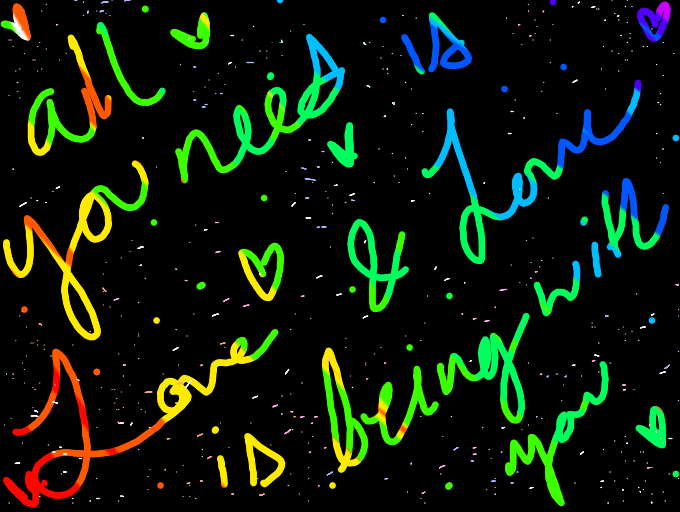 all you need is Love
& Love is being with you